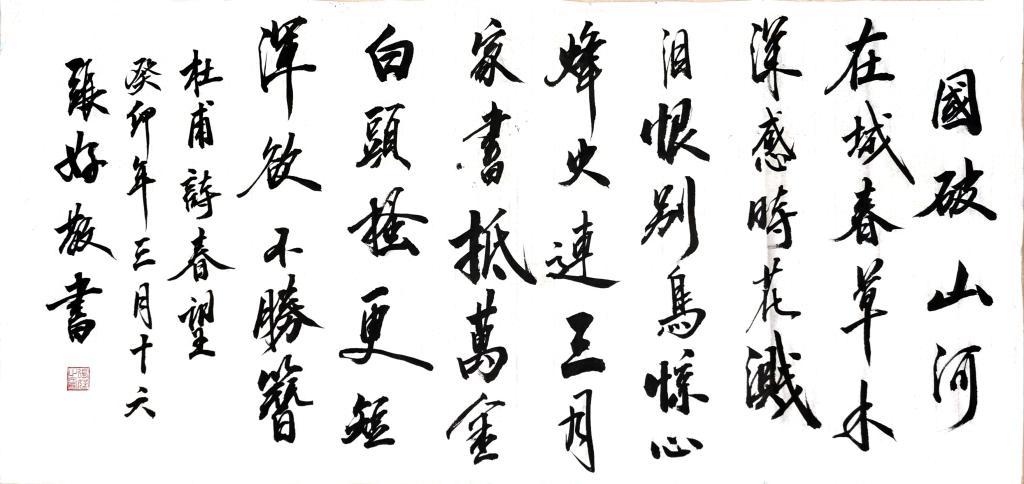 國破山河
在城春草木
深感時花濺
泪恨别鳥惊心
烽火連三月
家書抵萬金
白頭搔更短
渾欲不勝簪
杜甫詩春望
癸卯年三月十六
張好書